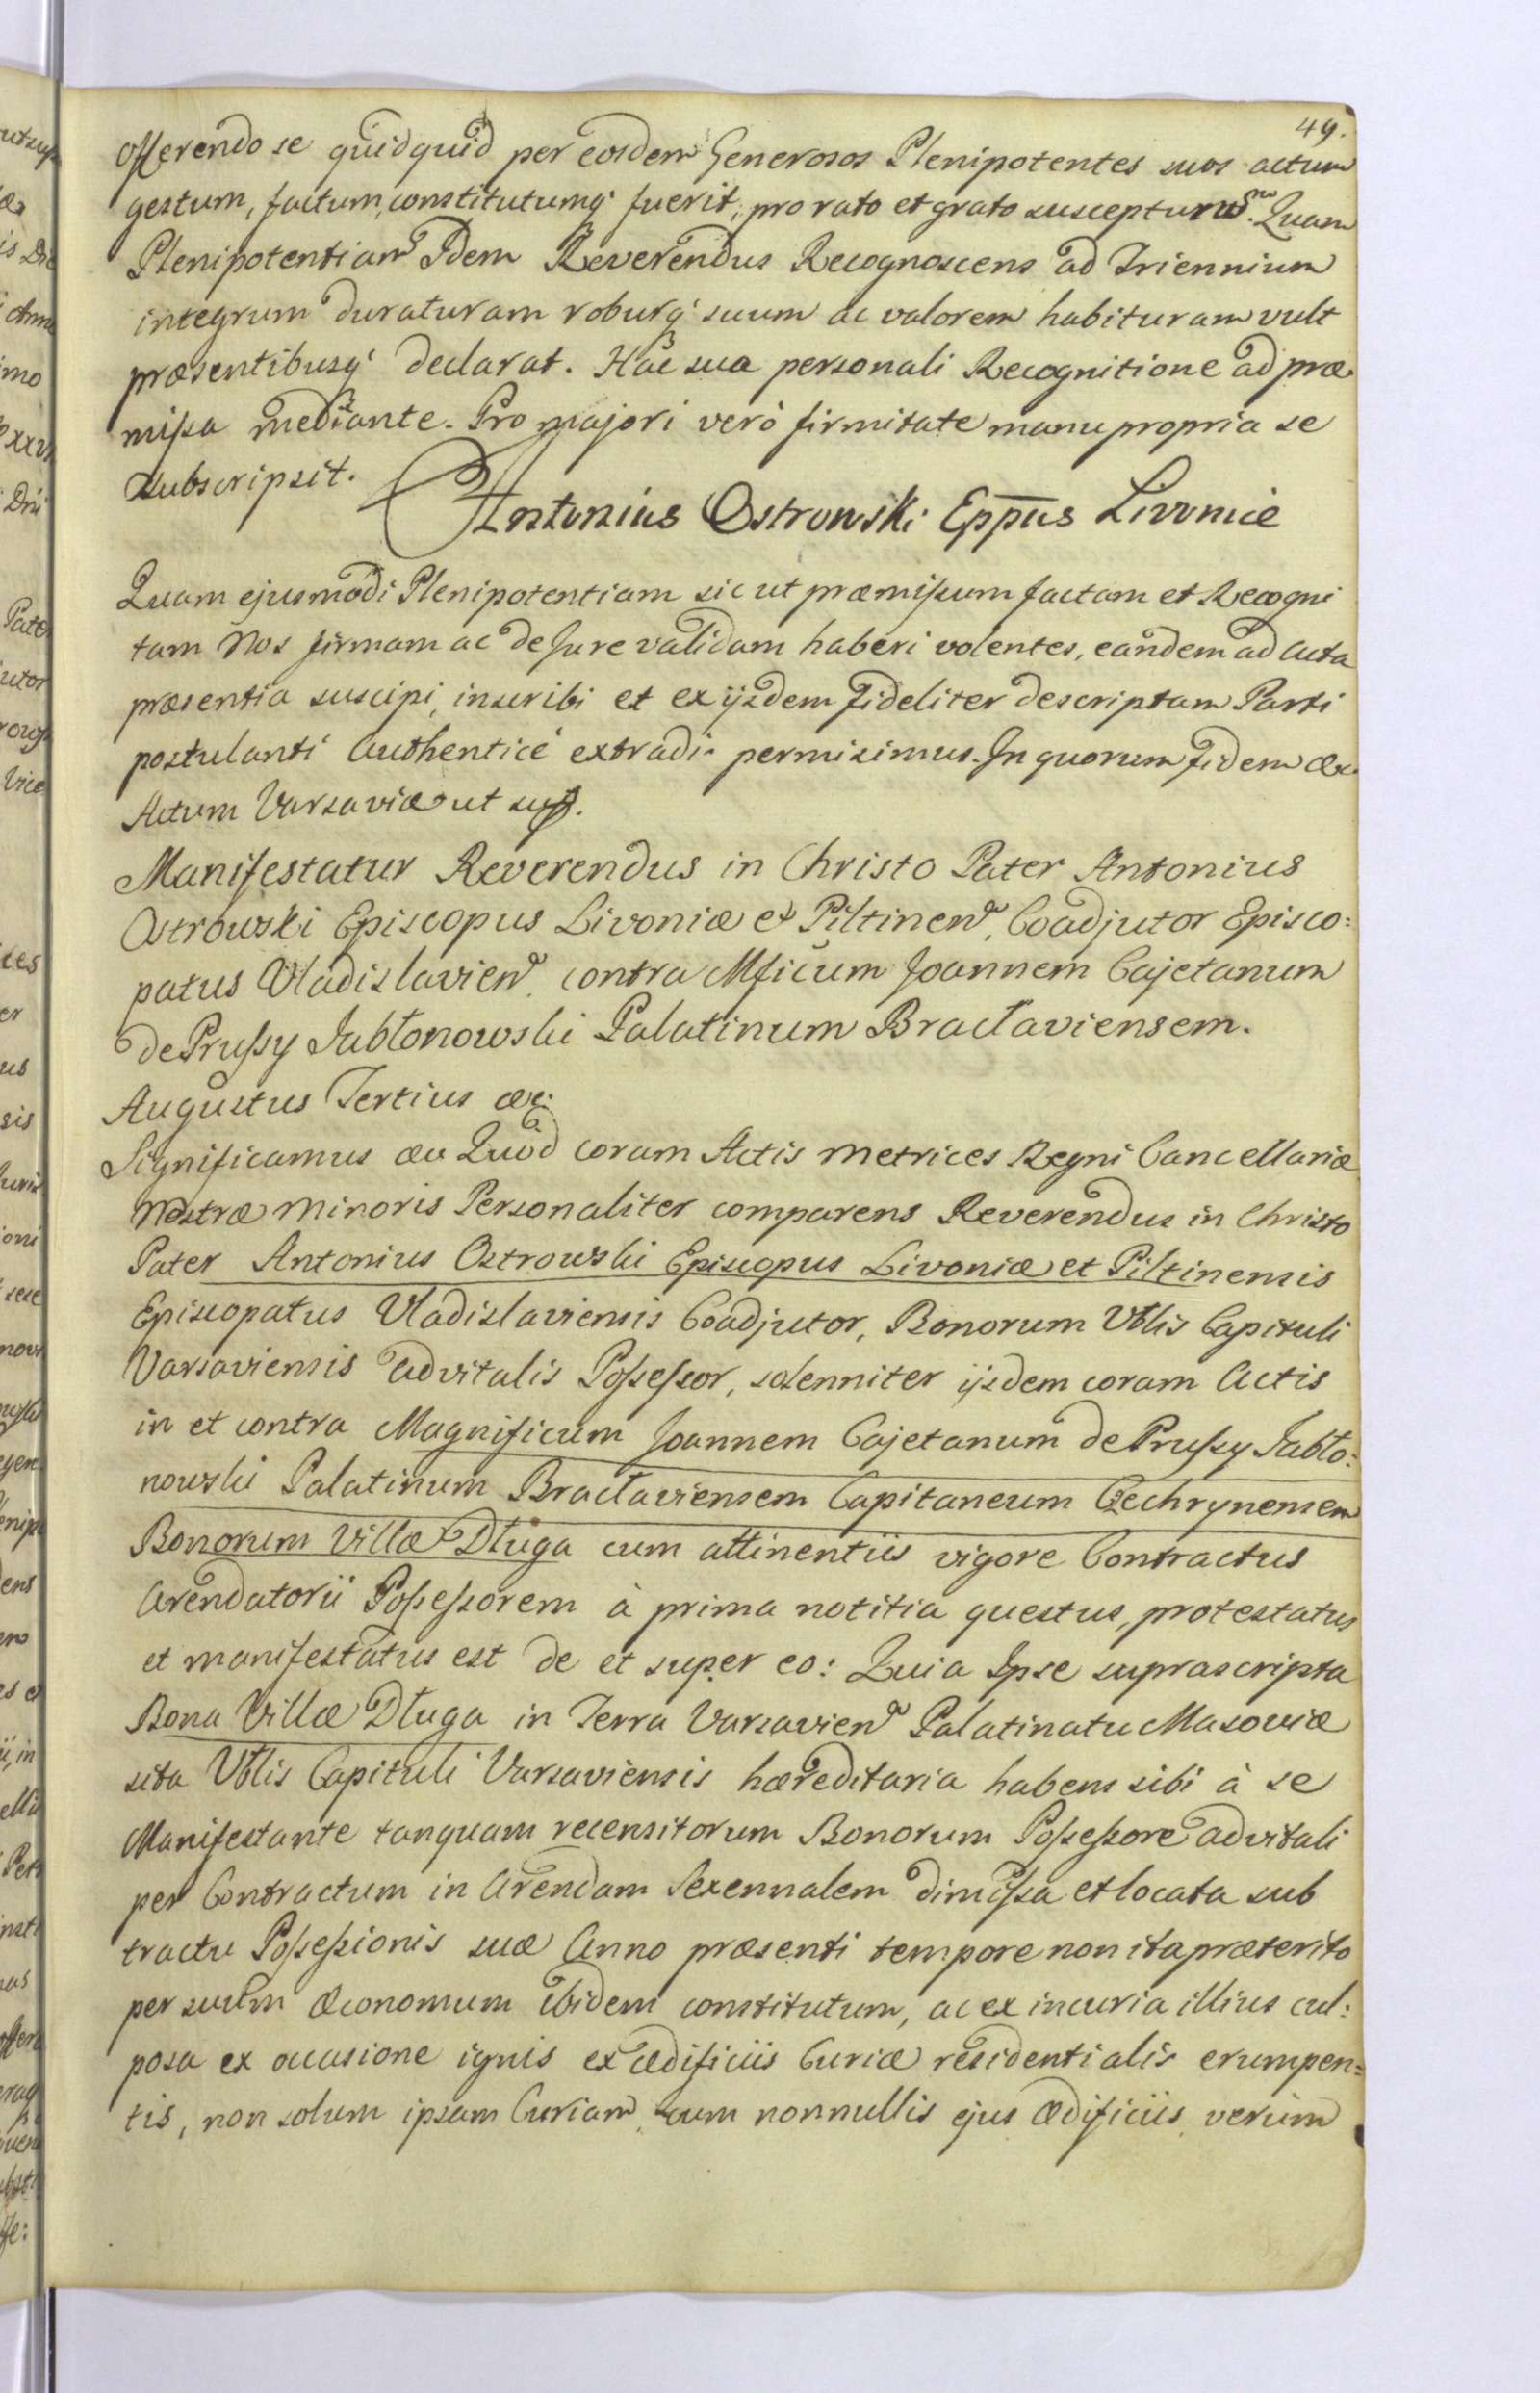 49.
offerendo se quidquid per eosdem Generosos Plenipotentes suos actum
gestum, factum, constitutumq; fuerit, pro rato et grato suscepturus. Quam
Plenipotentiam Idem Reverendus Recognoscens ad Triennium
integrum duraturam roburq; suum ac valorem habituram vult
præsentibusq; declarat. Hac sua personali Recognitione ad præ
missa mediante. Pro majori verò firmitate manu propria se
subscripsit.
Antonius Ostrowski Eppus Livoniæ
Quam ejusmodi Plenipotentiam sic ut præmissum factam et Recogni
tam Nos firmam ac de Jure validam haberi volentes, eandem ad Acta
præsentia suscipi, inscribi et ex ijsdem fideliter descriptam Parti
postulanti authenticè extradi permisimus. In quorum fidem &c.
Actum Varsaviæ ut sup.
Manifestatur Reverendus in Christo Pater Antonius
Ostrowski Episcopus Livoniæ et Piltinen, Coadjutor Episco:
patus Vladislavien. contra Mficum Joannem Cajetanum
de Prussy Jabłonowski Palatinum Braclaviensem.
Augustus Tertius &c.
Significamus &c Quòd coram Actis Metrices Regni Cancellariæ
Nostræ Minoris Personaliter comparens Reverendus in Christo
Pater Antonius Ostrowski Episcopus Livoniæ et Piltinensis
Episcopatus Vladislaviensis Coadjutor, Bonorum Vblis Capituli
Varsaviensis advitalis Possessor, solenniter ijsdem coram Actis
in et contra Magnificum Joannem Cajetanum de Prussy Jabło:
nowski Palatinum Braclaviensem Capitaneum Czechrynensem
Bonorum Villæ Długa cum attinentiis vigore Contractus
Arendatorii Possessorem à prima notitia questus, protestatus
et manifestatus est de et super eo: Quia Ipse suprascripta
Bona Villæ Długa in Terra Varsavien Palatinatu Masoviæ
sita Vblis Capituli Varsaviensis hæreditaria habens sibi à se
Manifestante tanquam recensitorum Bonorum Possessore advitali
per Contractum in Arendam Sexennalem dimissa et locata sub
tractu Possessionis suæ Anno præsenti tempore non ita præterito
per suum Œconomum ibidem constitutum, ac ex incuria illius cul:
posa ex occasione ignis ex ædificiis Curiæ residentialis erumpen=
tis, non solum ipsam Curiam, cum nonnullis ejus ædificiis verum